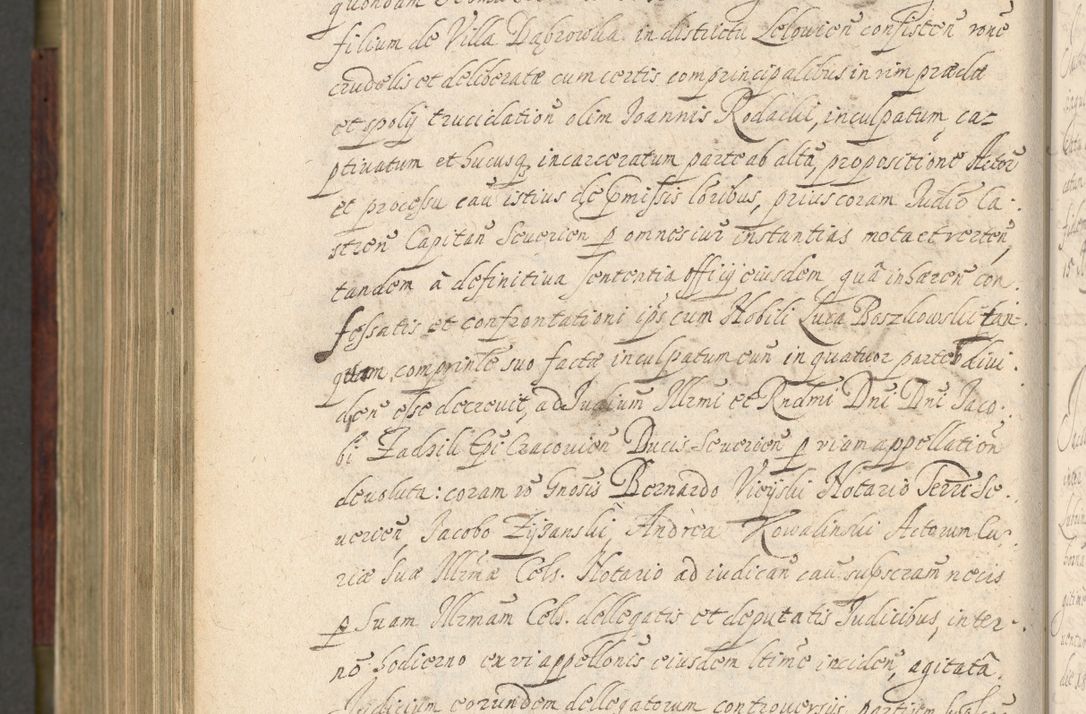 filium de Villa Dąbrowka in districtu Lelovien̄ consisten̄ rōne
crudelis et deliberatæ cum certis comprincipalibus in vim prædæ
et spolij trucidation̄ olim Joannis Rodacki, inculpatum, ca-
ptivatum et hucusq₃ incarceratum parte ab altā, propositionē Actor̄
et processu caū istius de p̄missis loribus, prius coram Judio Ca-
stren̄ Capitan̄ Severien̄ p omnes iur̄ instantias mota et verten̄,
tandem à definitiva sententia officij eiusdem quā inhæren̄ con
fessatis et confrontationi ips̄ cum Nobili Luca Boszkowski tan-
quam comprinle suo factæ inculpatum eun̄ in quatuor partes divi
den̄ esse decrevit, ad Iudium Illrmi et Rndmi Dn̄i Dn̄i Jaco-
bi Zadzik Epī Cracovien̄ Ducis Severien̄ p viam appellation̄
devoluta: coram rō Gnosis Bernardo Vieyski Notario Terrı̄ Se-
verien̄, Jacobo Zyzanski, Andrea Kowalinski Actorum Cu-
riæ Suæ Illrmæ Cels. Notario ad iudican̄ caū subscram̄ necis
p Suam Illrmam̄ Cels. dellegatis et deputatis Judicibus, inter-
nō hodierno ex vi appellonis eiusdem ltimē inciden̄, agitatā.
Judicium eorundem dellegatorum controversijs partium